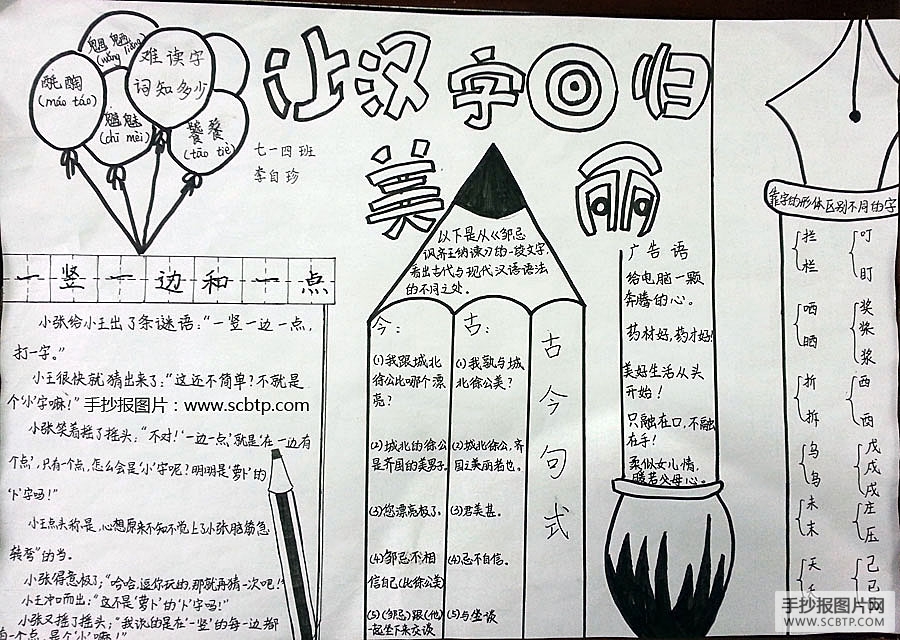 让汉字回归
美丽
七一四班
李自珍
难读字
词知多少
魍魉
(wǎng liǎng)
酕醄
(máo táo)
魑魅
(chī mèi)
饕餮
(tāo tiè)
一竖一边和一点
小张给小王出了条谜语：“一竖一边一点，
打一字。”
小王很快就猜出来了：“这还不简单？不就是
个‘小’字嘛！”
小张笑着摇了摇头：“不对！‘一边一点’，就是‘在一边有
个点’，只有一个点，怎么会是‘小’字呢？明明是‘萝卜’的
‘卜’字吗！”
小王点头称是，心想原来不知不觉上了小张脑筋急
转弯”的当。
小张得意极了：“哈哈，逗你玩的，那就再猜一次吧！”
小王冲口而出：“这不是‘萝卜’的‘卜’字吗！”
小张又摇了摇头：“我说的是在‘一竖’的每一边都
有一个点，是个‘小’嘛！”
以下是从《邹忌
讽齐王纳谏》的一段文字，
看出古代与现代汉语语法
的不同之处。
今：
(1)我跟城北
徐公比哪个漂
亮？
(2)城北的徐公
是齐国的美男。
(3)您漂亮极了，
(4)邹忌不相
信自己(比徐公美)
(5)(邹忌)跟(他)
一起坐下来交谈
古：
(1)我孰与城
北徐公美？
(2)城北徐公，齐
国之美丽者也。
(3)君美甚。
(4)忌不自信。
(5)与坐谈
古今句式
广告语
给电脑一颗
奔腾的心。
药材好，药才好！
美好生活从头
开始！
只融在口，不融
在手！
柔似女儿情，
暖若父母心。
靠字的形体区别不同的字
拦
栏
叮
盯
哂
晒
奖
桨
浆
折
拆
西
乌
鸟
戊
戌
戍
未
末
庄
压
天
己
已
手抄报图片：www.scbtp.com
手抄报图片网
WWW.SCBTP.COM